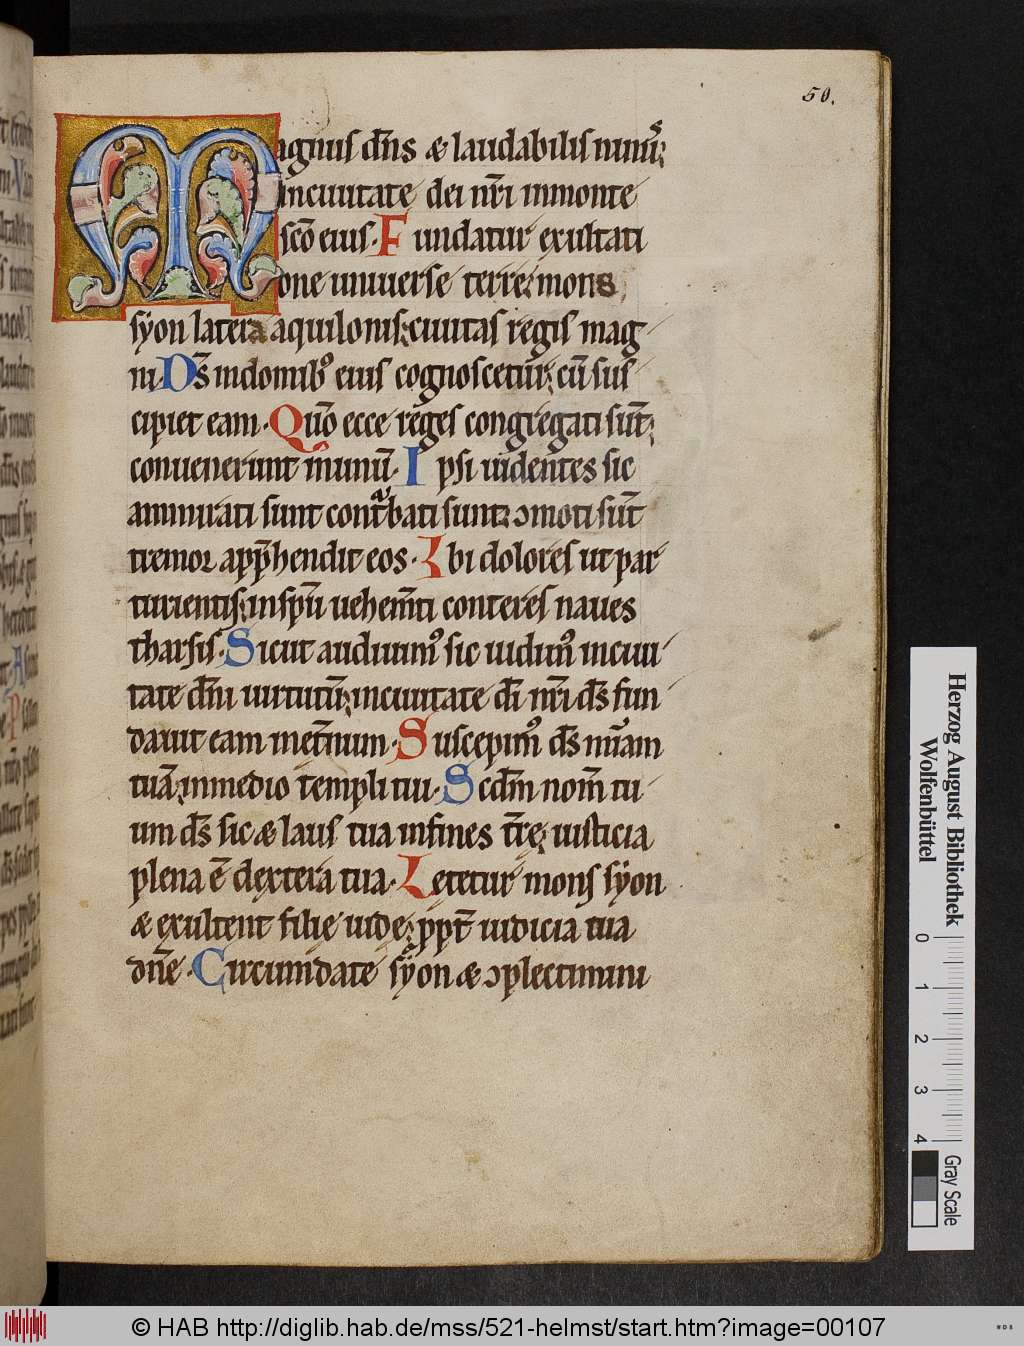 50.
Magnus dn̄s & laudabilis nimis;
in ciuitate dei nr̄i in monte
sc̄o eius. Fundatur exultati
one uniuerse terrę mons
syon latera aquilonis; ciuitas regis mag
ni. Ds̄ in domib; eius cognoscetur; cū sus
cipiet eam. Qūo ecce reges congregati sūt;
conuenerunt in unū. Ipsi uidentes sic
ammirati sunt contͣbati sunt; ↄmoti sūt
tremor app̄hendit eos. Ibi dolores ut par
turientis; in spū uehem̄ti conteres naues
tharsis. Sicut audiuimꝰ sic uidimꝰ in ciui
tate dn̄i uirtutū; in ciuitate dī nr̄i ds̄ fun
dauit eam in et̄num. Suscepimꝰ ds̄ mīam
tuā; in medio templi tui. Scdm̄ nom̄ tu
um ds̄ sic & laus tua in fines t̄rę; iusticia
plena ē dextera tua. Letetur mons syon
& exultent filię iudę; ꝓpt̄ iudicia tua
dn̄e. Circumdate syon & ↄplectimini
Herzog August Bibliothek
Wolfenbüttel
0 1 2 3 4
Gray Scale
© HAB http://diglib.hab.de/mss/521-helmst/start.htm?image=00107